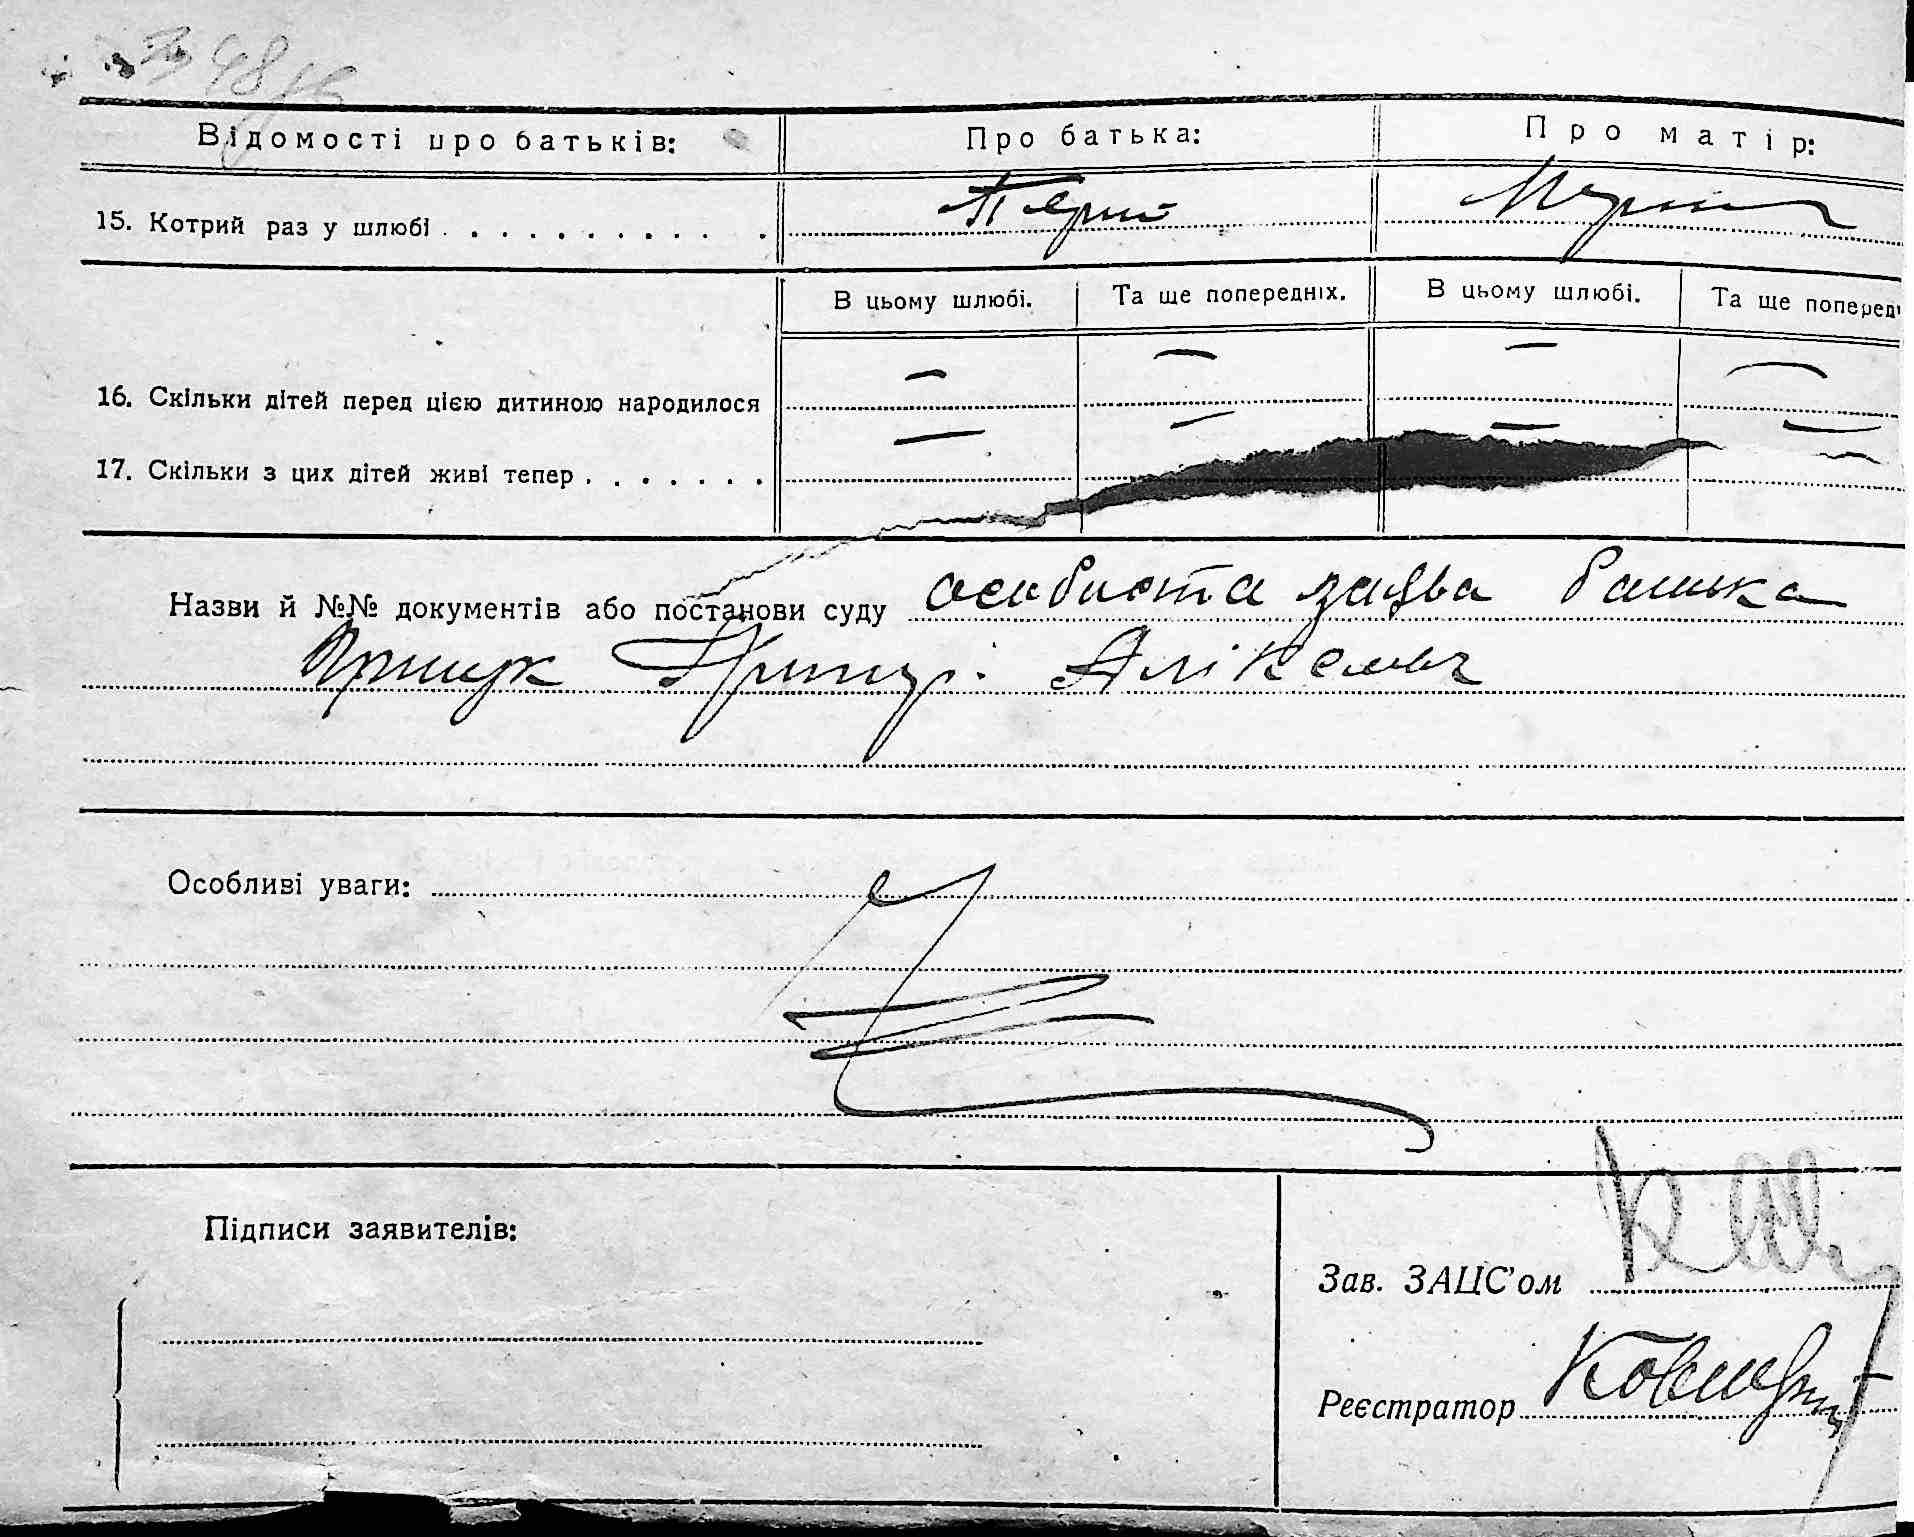 48
Відомості про батьків: Про батька: Про матір:
15. Котрий раз у шлюбі Перший
В цьому шлюбі. Та ще попередніх. В цьому шлюбі. Та ще поперед
16. Скільки дітей перед цією дитиною народилося — — — —
17. Скільки з цих дітей живі тепер — — — —
Назви й №№ документів або постанови суду особиста заява батька
Особливі уваги:
Підписи заявителів:
Зав. ЗАЦС'ом
Реєстратор